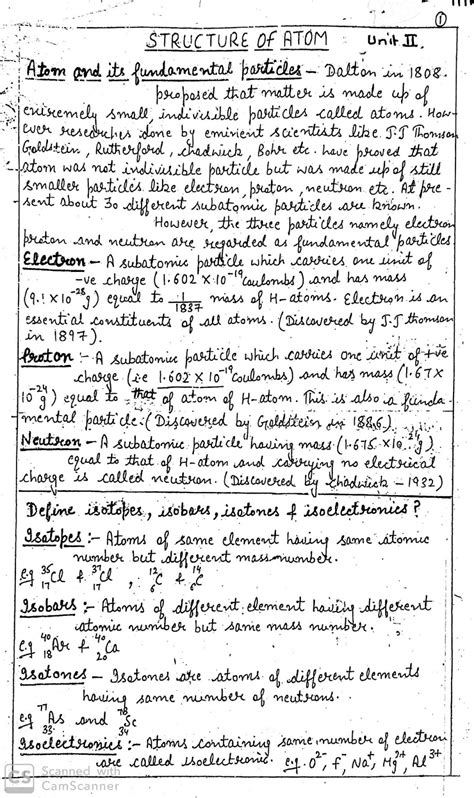 ①
STRUCTURE OF ATOM Unit II.
Atom and its fundamental particles - Dalton in 1808.
proposed that matter is made up of
extremely small, indivisible particles called atoms. How-
ever researches done by eminent scientists like J.J Thomson
Goldstein, Rutherford, Chadwick, Bohr etc. have proved that
atom was not indivisible particle but was made up of still
smaller particles like electron, proton, neutron etc. At pre-
sent about 30 different subatomic particles are known.
However, the three particles namely electron
proton and neutron are regarded as fundamental particles
Electron - A subatomic particle which carries one unit of
-ve charge (1.602 X 10⁻¹⁹ Coulombs) and has mass
(9.1 X 10⁻²⁸g) equal to 1/1837 mass of H-atoms. Electron is an
essential constituents of all atoms. (Discovered by J.J thomson
in 1897).
Proton :- A subatomic particle which carries one unit of +ve
charge (i.e 1.602 X 10⁻¹⁹ Coulombs) and has mass (1.67X
10⁻²⁴g) equal to that of atom of H-atom. This is also a funda-
mental particle. (Discovered by Goldstein in 1886).
Neutron - A subatomic particle having mass (1.675 X10⁻²⁴g)
equal to that of H-atom and carrying no electrical
charge is called neutron. (Discovered by Chadwick - 1932)
Define isotopes, isobars, isotones & isoelectronics?
Isotopes :- Atoms of same element having same atomic
number but different mass number.
eg ³⁵₁₇Cl & ³⁷₁₇Cl , ¹²₆C & ¹⁴₆C
Isobars :- Atoms of different element having different
atomic number but same mass number.
e.g ⁴⁰₁₈Ar & ⁴⁰₂₀Ca
Isotones - Isotones are atoms of different elements
having same number of neutrons.
e.g ⁷⁷₃₃As and ⁷⁸₃₄Se
Isoelectronics :- Atoms containing same number of electron
are called isoelectronic. e.g. O²⁻, F⁻, Na⁺, Mg²⁺, Al³⁺
CS Scanned with
CamScanner